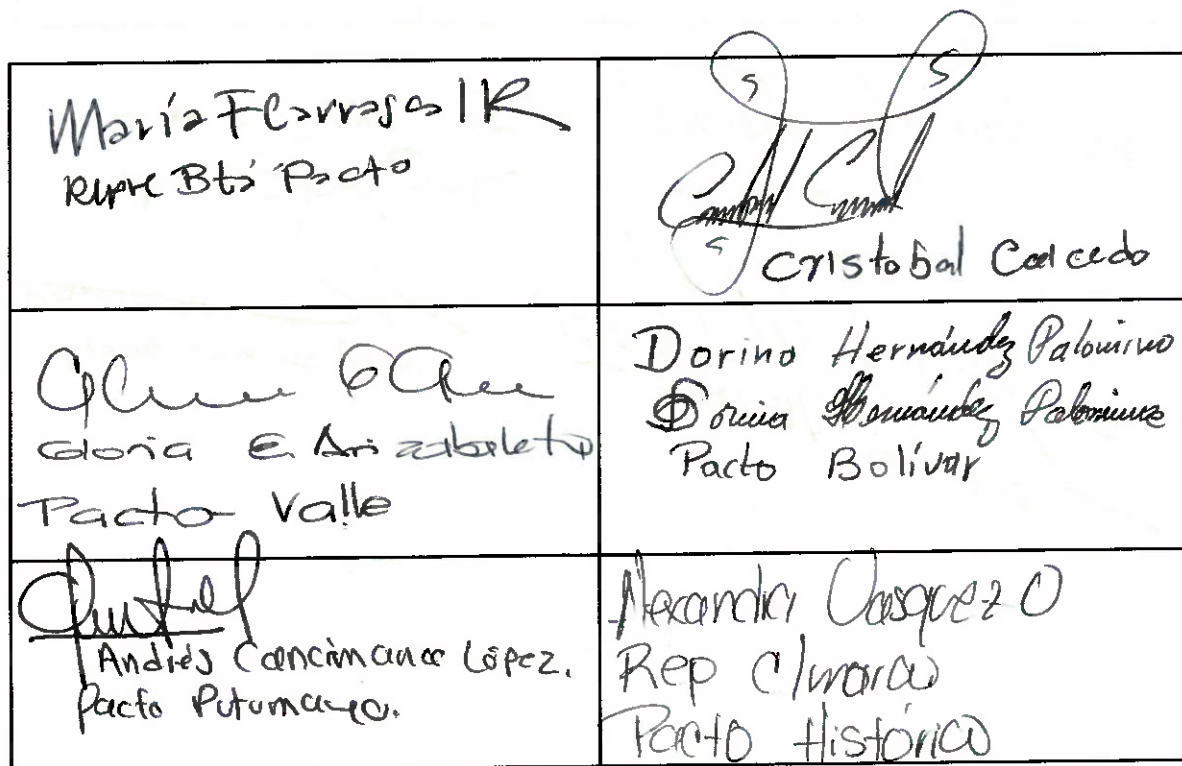 María F Carrasca IR
Repre Btá Pacto
Cristobal Caicedo
Gloria E. Arizabaleta
Pacto Valle
Dorina Hernández Palomino
Dorina Hernández Palomino
Pacto Bolívar
Andrés Cancimance López.
Pacto Putumayo.
Alexandra Vasquez O
Rep Cámara
Pacto Histórico